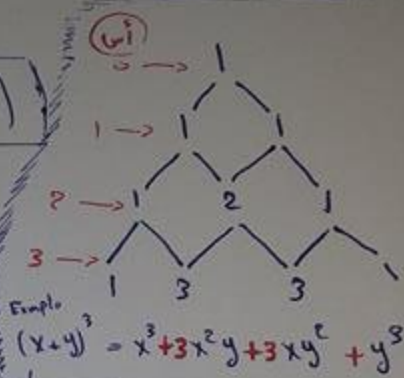 أس
0 → 1
1 → 1 1
2 → 1 2 1
3 → 1 3 3 1
Example
(x+y)³ = x³+3x²y+3xy²+y³